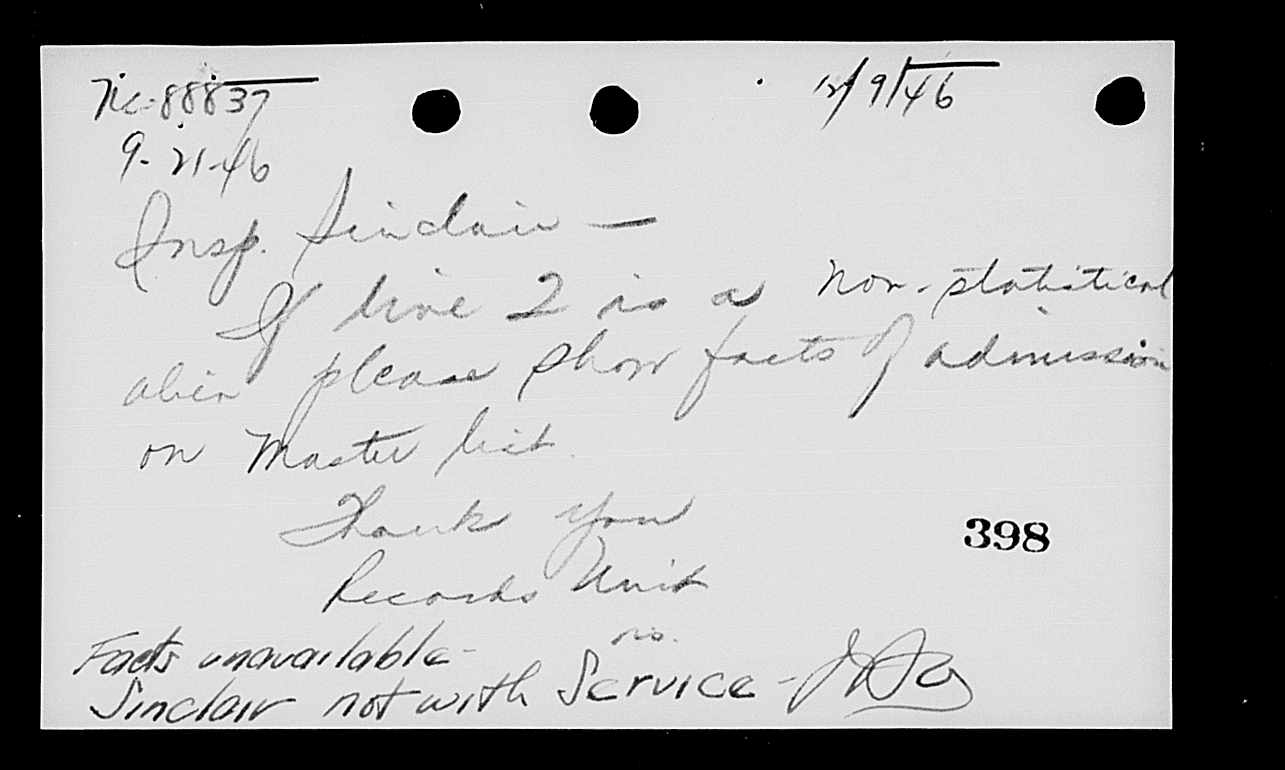 Nc-88837 12/9/46
9-21-46
Insp. Sinclair —
If line 2 is a non-statistical
alien please show facts of admission
on Master list.
Thank you
398
Records Unit
Facts unavailable -
Sinclair not with Service -